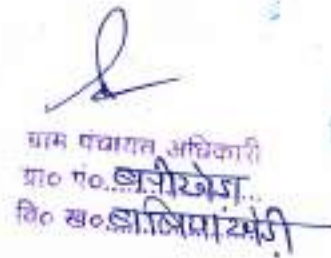 ग्राम पंचायत अधिकारी
ग्रा० पं० बनीखेड़ा
वि० ख०